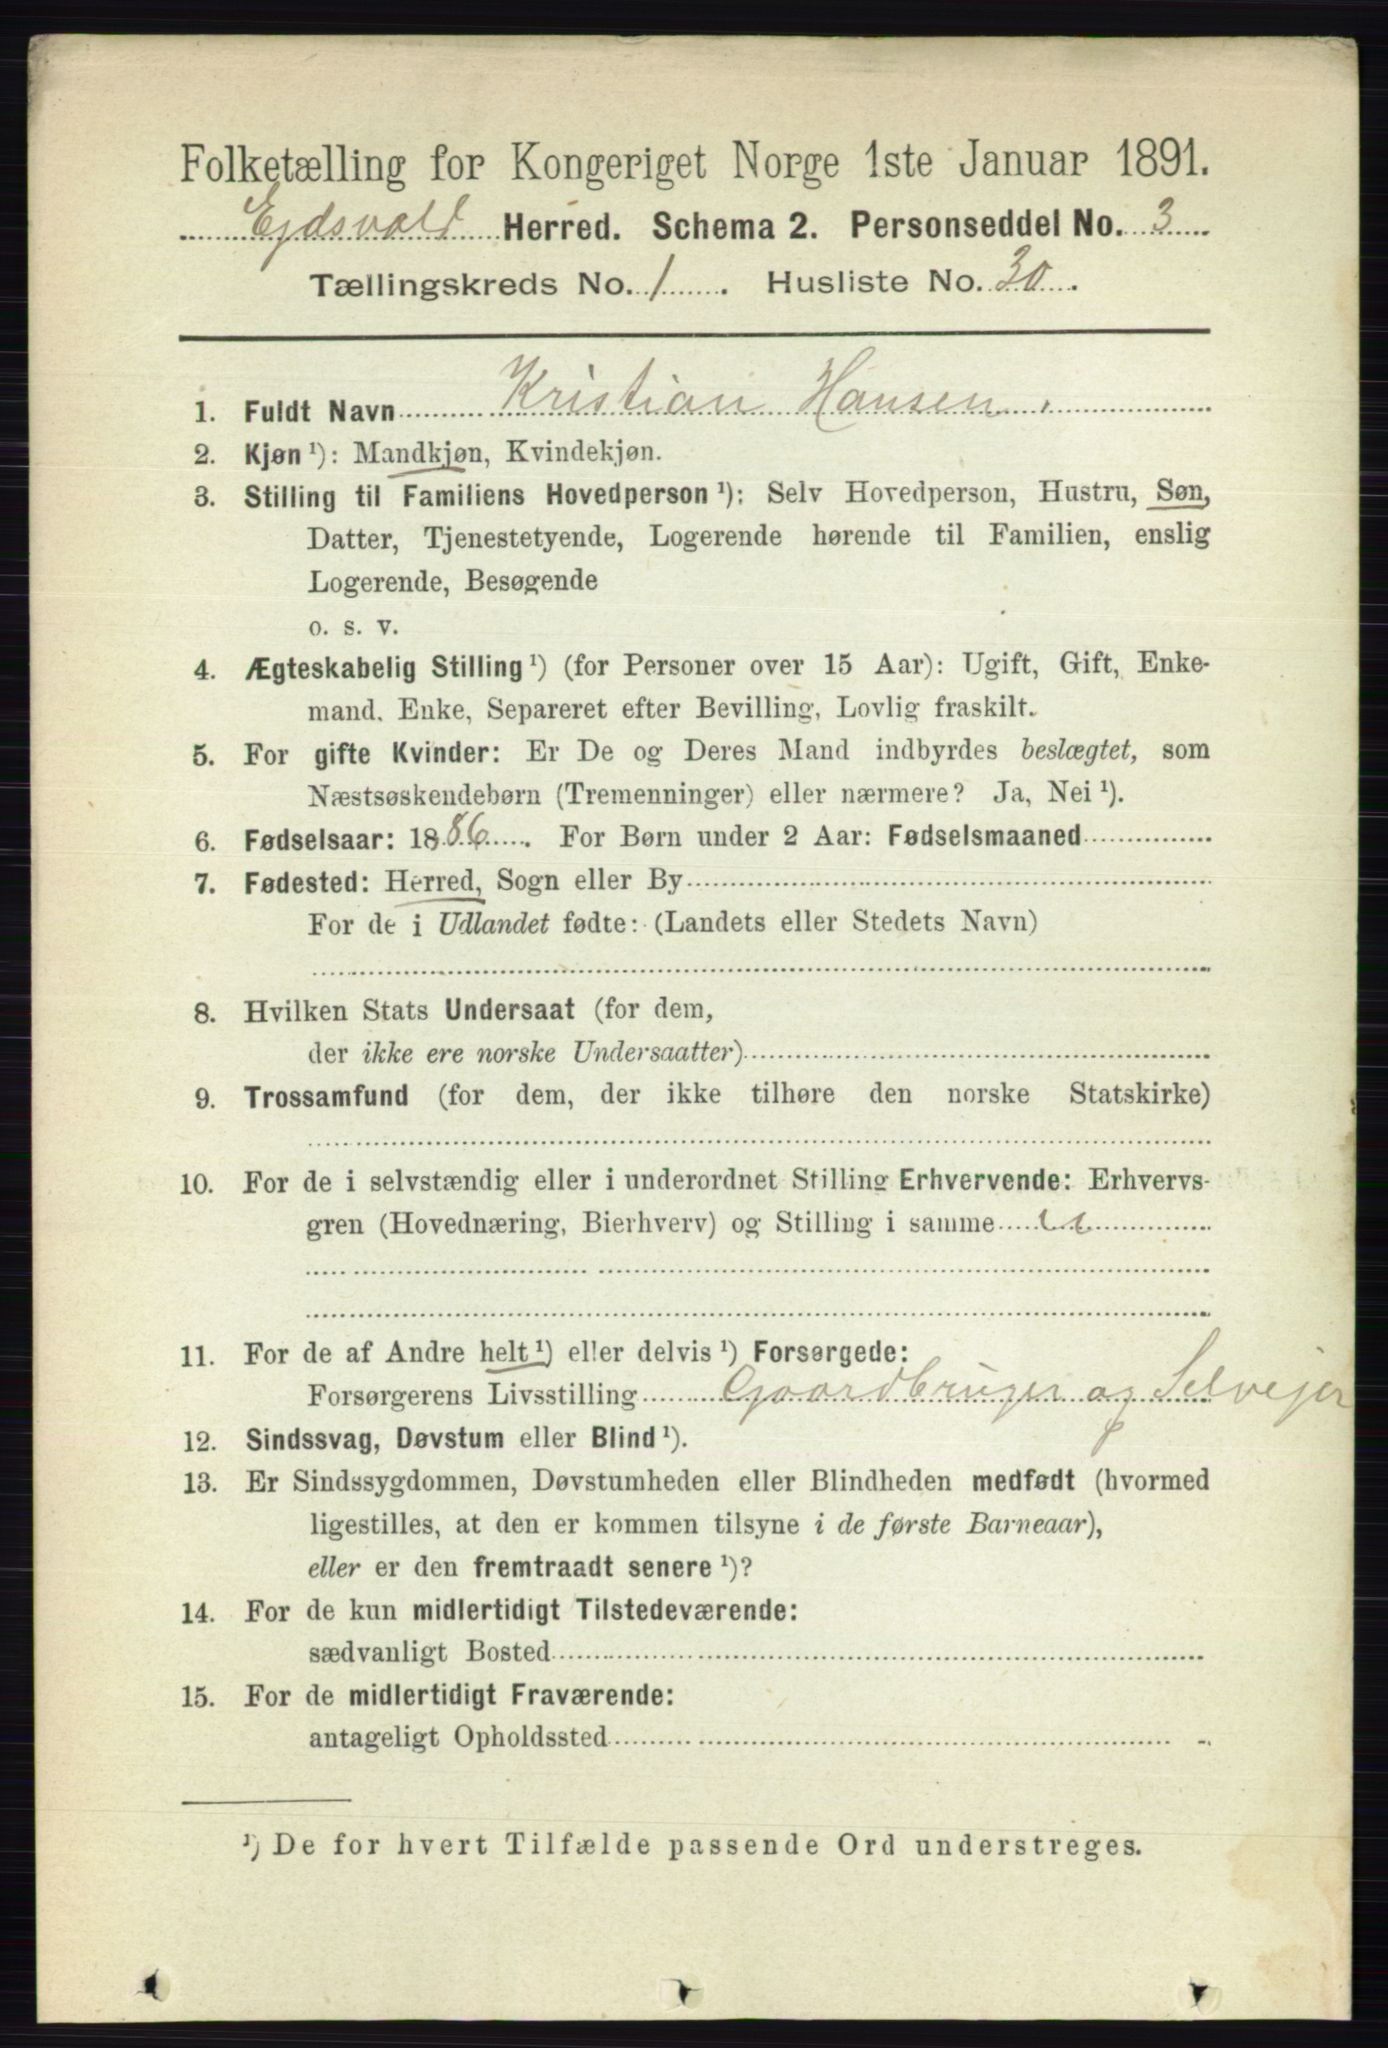 Folketælling for Kongeriget Norge 1ste Januar 1891.
Ejdsvold Herred. Schema 2. Personseddel No. 3
Tællingskreds No. 1. Husliste No. 30.
1. Fuldt Navn Kristian Hansen.
2. Kjøn ¹): Mandkjøn, Kvindekjøn.
3. Stilling til Familiens Hovedperson ¹): Selv Hovedperson, Hustru, Søn,
Datter, Tjenestetyende, Logerende hørende til Familien, enslig
Logerende, Besøgende
o. s. v.
4. Ægteskabelig Stilling ¹) (for Personer over 15 Aar): Ugift, Gift, Enke-
mand. Enke, Separeret efter Bevilling, Lovlig fraskilt.
5. For gifte Kvinder: Er De og Deres Mand indbyrdes beslægtet, som
Næstsøskendebørn (Tremenninger) eller nærmere? Ja, Nei ¹).
6. Fødselsaar: 1886. For Børn under 2 Aar: Fødselsmaaned
7. Fødested: Herred, Sogn eller By
For de i Udlandet fødte: (Landets eller Stedets Navn)
8. Hvilken Stats Undersaat (for dem,
der ikke ere norske Undersaatter)
9. Trossamfund (for dem, der ikke tilhøre den norske Statskirke)
10. For de i selvstændig eller i underordnet Stilling Erhvervende: Erhvervs-
gren (Hovednæring, Bierhverv) og Stilling i samme
11. For de af Andre helt ¹) eller delvis ¹) Forsørgede:
Forsørgerens Livsstilling Gaardbruger og Selvejer
12. Sindssvag, Døvstum eller Blind ¹).
13. Er Sindssygdommen, Døvstumheden eller Blindheden medfødt (hvormed
ligestilles, at den er kommen tilsyne i de første Barneaar),
eller er den fremtraadt senere ¹)?
14. For de kun midlertidigt Tilstedeværende:
sædvanligt Bosted
15. For de midlertidigt Fraværende:
antageligt Opholdssted
¹) De for hvert Tilfælde passende Ord understreges.